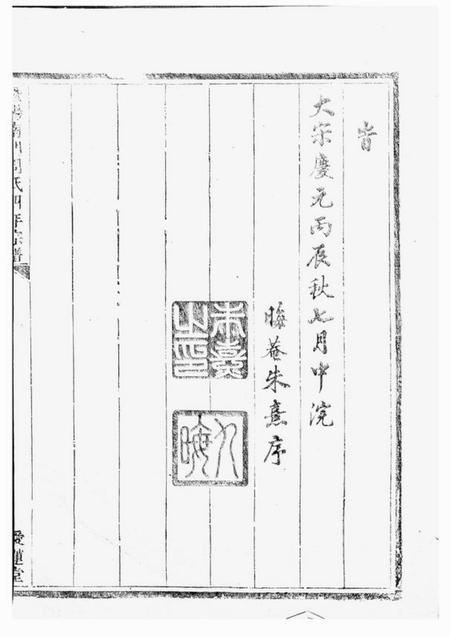 旹
大宋慶元丙辰秋七月中浣
晦菴朱熹序
朱熹之印
晦
門周氏四房宗譜
愛蓮堂